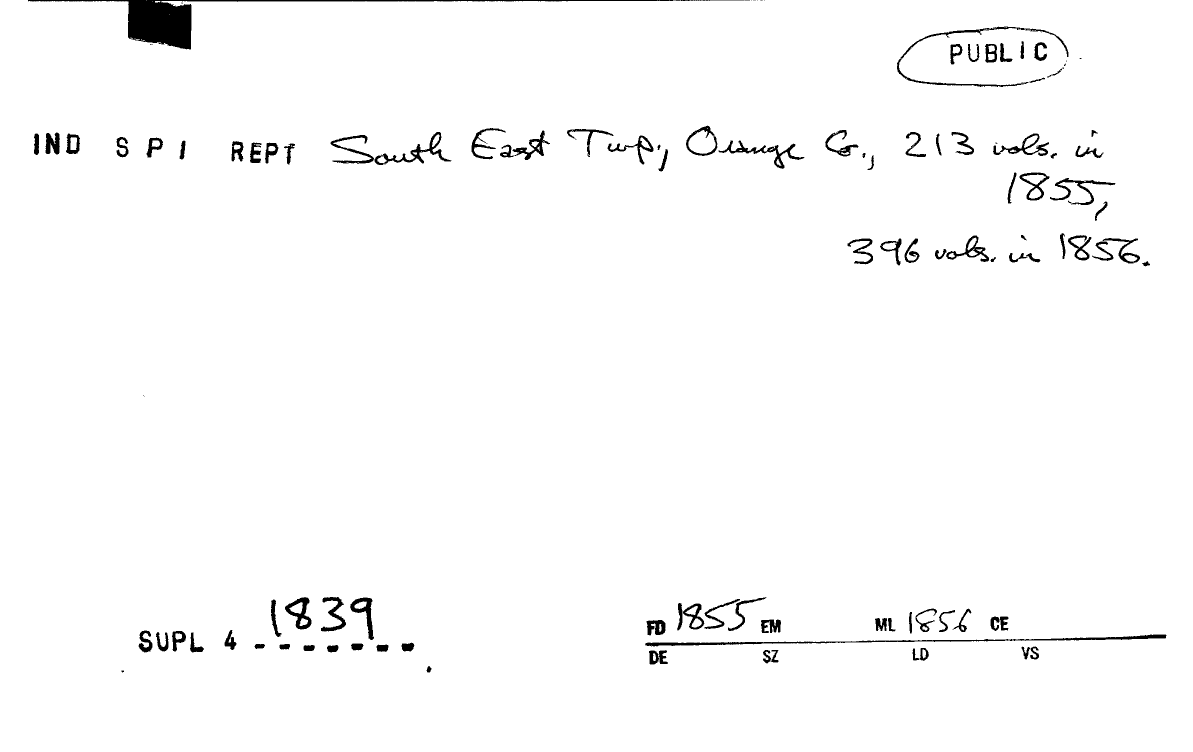 PUBLIC
IND S P I REPT South East Twp., Orange Co., 213 vols. in
1855,
396 vols. in 1856.
SUPL 4 1839
FD 1855 EM ML 1856 CE
DE SZ LD VS